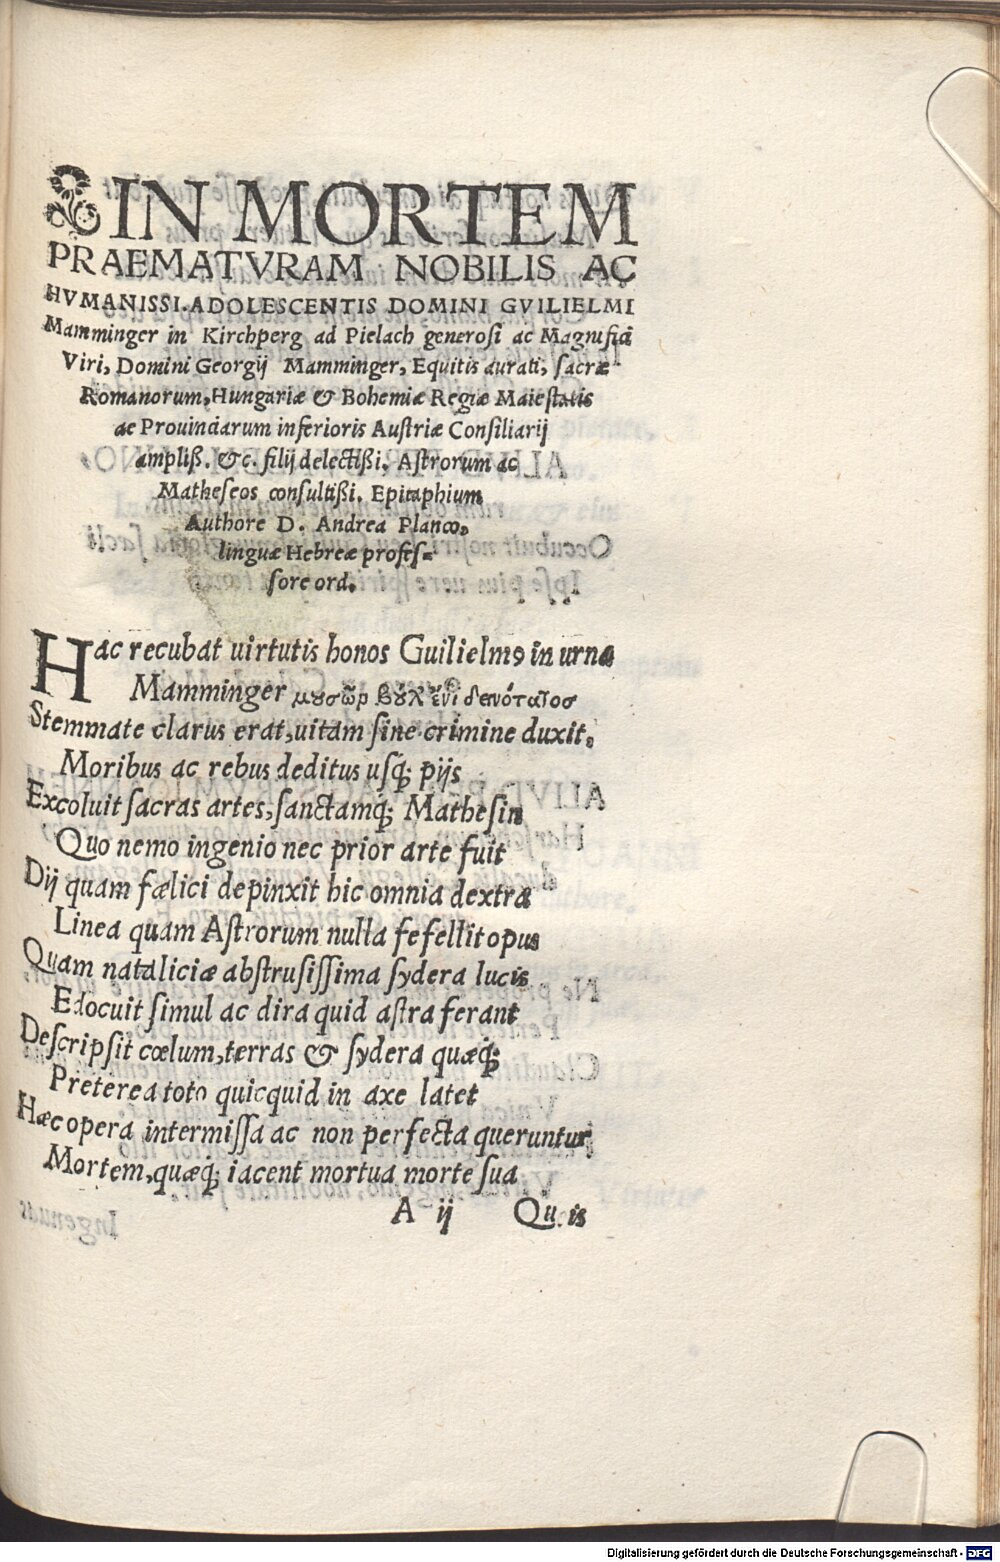 IN MORTEM
PRAEMATVRAM NOBILIS AC
HVMANISSI. ADOLESCENTIS DOMINI GVILIELMI
Mamminger in Kirchperg ad Pielach generosi ac Magnifici
Viri, Domini Georgij Mamminger, Equitis aurati, sacræ
Romanorum, Hungariæ & Bohemiæ Regiæ Maiestatis
ac Prouinciarum inferioris Austriæ Consiliarij
ampliß. &c. filij delectißi, Astrorum ac
Matheseos consultißi. Epitaphium
Authore D. Andrea Planco,
linguæ Hebreæ profes=
sore ord.
Hac recubat uirtutis honos Guilielmꝰ in urna
Mamminger μουσῶρ βουλ' ἔνι δενότατος
Stemmate clarus erat, uitam sine crimine duxit,
Moribus ac rebus deditus usq; pijs
Excoluit sacras artes, sanctamq; Mathesin
Quo nemo ingenio nec prior arte fuit
Dij quam fælici depinxit hic omnia dextra
Linea quam Astrorum nulla fefellit opus
Quam nataliciæ abstrusissima sydera lucis
Edocuit simul ac dira quid astra ferant
Descripsit cœlum, terras & sydera quæq;
Preterea toto quicquid in axe latet
Hæc opera intermissa ac non perfecta queruntur
Mortem, quæq; iacent mortua morte sua
A ij Quis
Digitalisierung gefördert durch die Deutsche Forschungsgemeinschaft - DFG